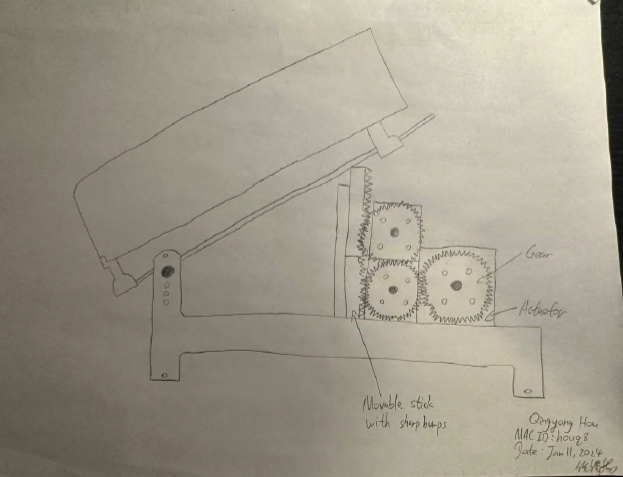 Gear
Actuator
Movable stick
with sharp bumps
Qingyang Hou
MAC ID: houq8
Date: Jan 11, 2024